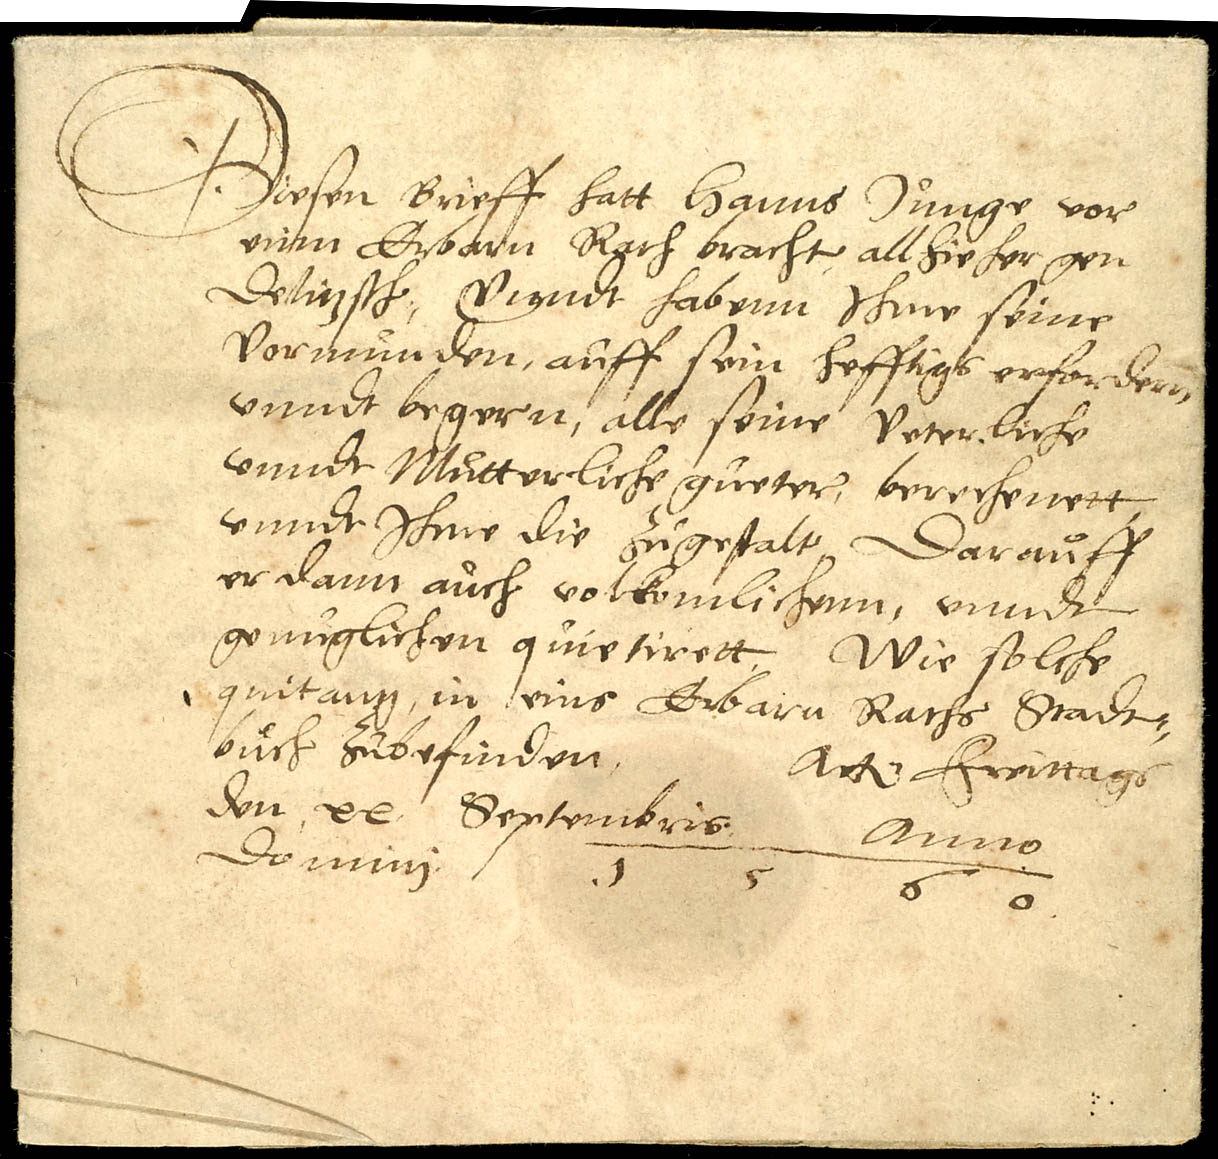 Diesen Brieff hatt Hanns Junge vor
einn Erbarn Rath bracht, allhieher gen
Delitzsch, Vnndt habenn Ihme seine
Vormunden, auff sein hefftigs erfordern,
vnndt begern, alle seine Veterliche
vnndt Mutterliche gueter, berechenett,
vnndt Ihme die zugestalt, Darauff
er dann auch volkomlichenn, vnndt
genuglichen quietirett, Wie solche
quitantz, in eins Erbarn Raths Stadt-
buch zubefinden, Act. Freittags
den xx Septembris Anno
Dominj 1 5 6 0